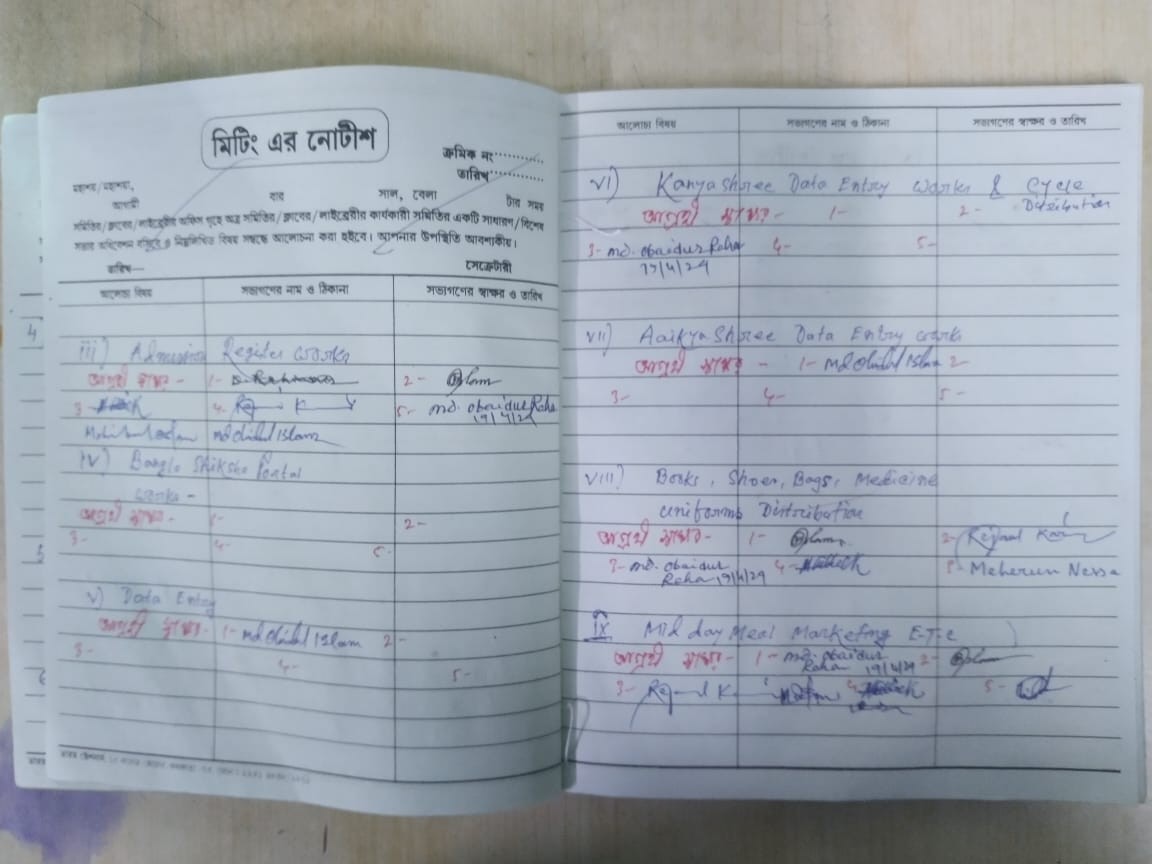 মিটিং এর নোটীশ
ক্রমিক নং............
তারিখ............
মহাশয়/মহাশয়া,
আগামী বার সাল, বেলা টার সময়
সমিতির/ক্লাবের/লাইব্রেরীর অফিস গৃহে অত্র সমিতির/ক্লাবের/লাইব্রেরীর কার্যকারী সমিতির একটি সাধারণ/বিশেষ
সভার অধিবেশন বসিবে ও নিম্নলিখিত বিষয় সম্বন্ধে আলোচনা করা হইবে। আপনার উপস্থিতি আবশ্যকীয়।
তারিখ— সেক্রেটারী
আলোচ্য বিষয় সভ্যগণের নাম ও ঠিকানা সভ্যগণের স্বাক্ষর ও তারিখ
iii) Admission Register works
আগ্রহী স্বাক্ষর - 1- 2-
3- 4- 5- md. obaidur Raha
19/4/24
md Ohidul Islam
iv) Bangla Shiksha Portal
works -
আগ্রহী স্বাক্ষর - 1- 2-
3- 4- 5-
v) Data Entry
আগ্রহী স্বাক্ষর - 1- md Ohidul Islam 2-
3- 4- 5-
4
5
6
আলোচ্য বিষয় সভ্যগণের নাম ও ঠিকানা সভ্যগণের স্বাক্ষর ও তারিখ
VI) Kanyashree Data Entry works & Cycle
Distribution
আগ্রহী স্বাক্ষর - 1- 2-
3- md. obaidur Raha 4- 5-
19/4/24
VII) Aaikyashree Data Entry work
আগ্রহী স্বাক্ষর - 1- md Ohidul Islam 2-
3- 4- 5-
VIII) Books, Shoes, Bags, Medicine
uniforms Distribution
আগ্রহী স্বাক্ষর - 1- 2- Rejaul Karim
3- md. obaidur 4- 5- Meherun Nessa
Raha 19/4/24
IX Mid day Meal Marketing E-T-C
আগ্রহী স্বাক্ষর - 1- md. obaidur 2-
Raha 19/4/24
3- 4- 5-